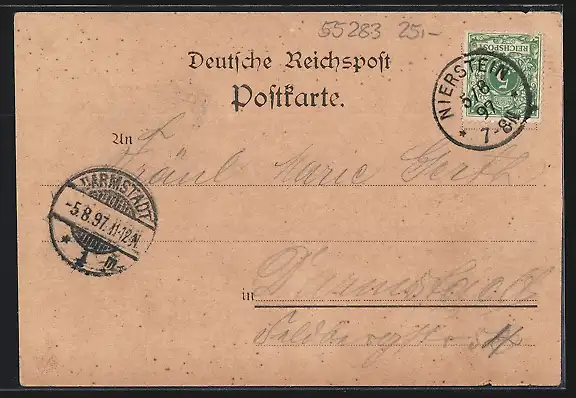 55283 25,-
Deutsche Reichspost
Postkarte.
REICHSPOST
5
NIERSTEIN
5/8
97
* 7-8N *
An Fräul Marie Gerth
DARMSTADT
-5.8.97.11-12N.
* 1 n.
in Darmstadt